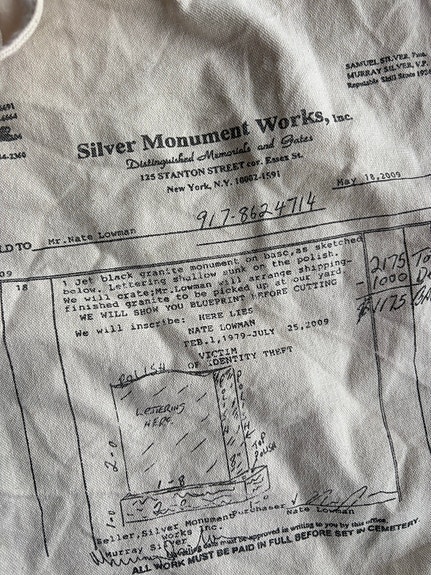 SAMUEL SILVER, Pres.
MURRAY SILVER, V.P.
Reputable Skill Since
Silver Monument Works, Inc.
Distinguished Memorials and Gates
125 STANTON STREET cor. Essex St.
New York, N.Y. 10002-1591
May 18,2009
917-8624714
LD TO Mr.Nate Lowman
09 18
1 Jet black granite monument on base,as sketched
below. Lettering shallow sunk on the polish.
We will crate;Mr.Lowman will arrange shipping-
finished granite to be picked up at our yard.
WE WILL SHOW YOU BLUEPRINT BEFORE CUTTING
2175
- 1000
$1175
We will inscribe: HERE LIES
NATE LOWMAN
FEB.1,1979-JULY 25,2009
VICTIM
OF IDENTITY THEFT
POLISH
LETTERING
HERE
POLISH
TOP
POLISH
2-0
1-8
8"
1-0
2-0
Seller,Silver Monument
Works Inc.
Purchaser
Nate Lowman
Murray Silver
must be approved in writing to you by this office.
ALL WORK MUST BE PAID IN FULL BEFORE SET IN CEMETERY.